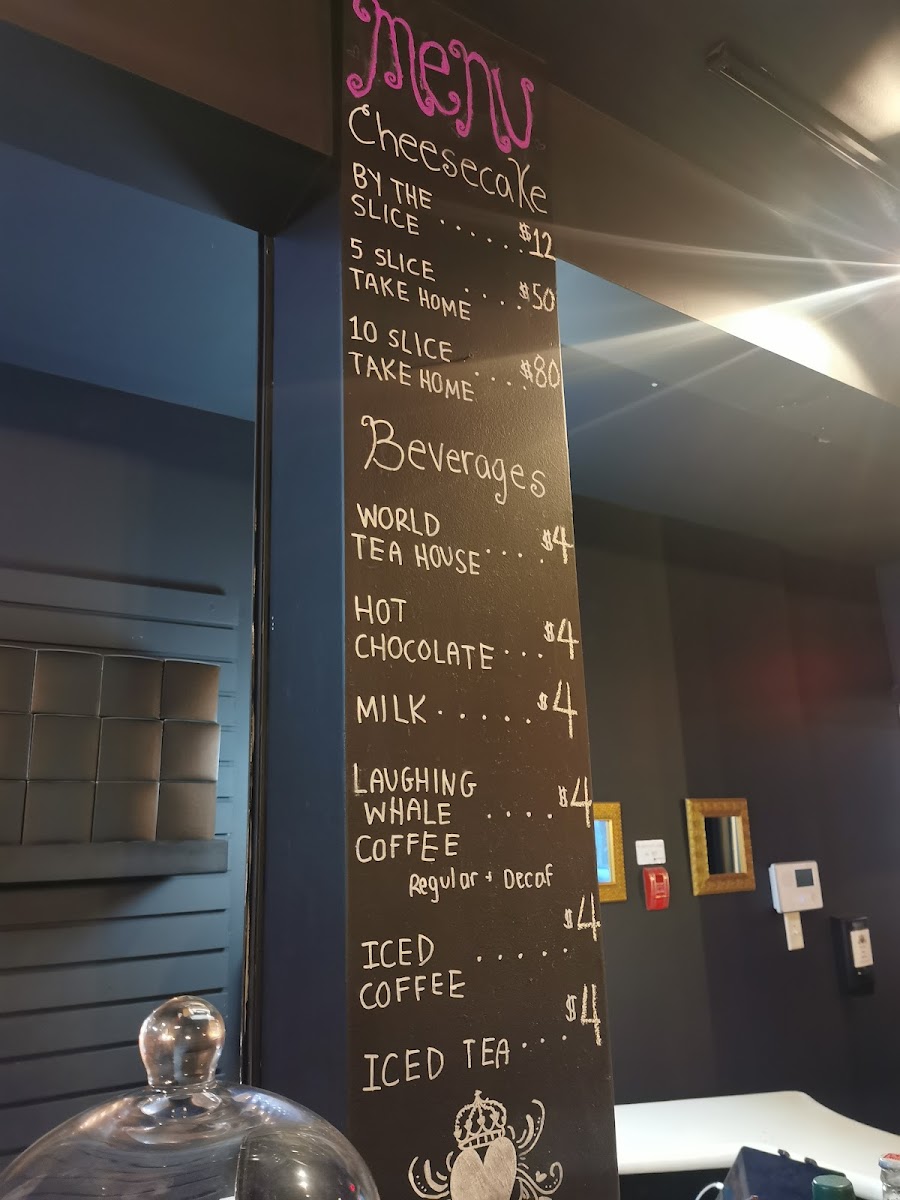 MENU
Cheesecake
BY THE
SLICE ...... $12
5 SLICE
TAKE HOME .... $50
10 SLICE
TAKE HOME .... $80
Beverages
WORLD
TEA HOUSE .... $4
HOT
CHOCOLATE ... $4
MILK ..... $4
LAUGHING
WHALE .... $4
COFFEE
Regular + Decaf
ICED ..... $4
COFFEE
ICED TEA ... $4